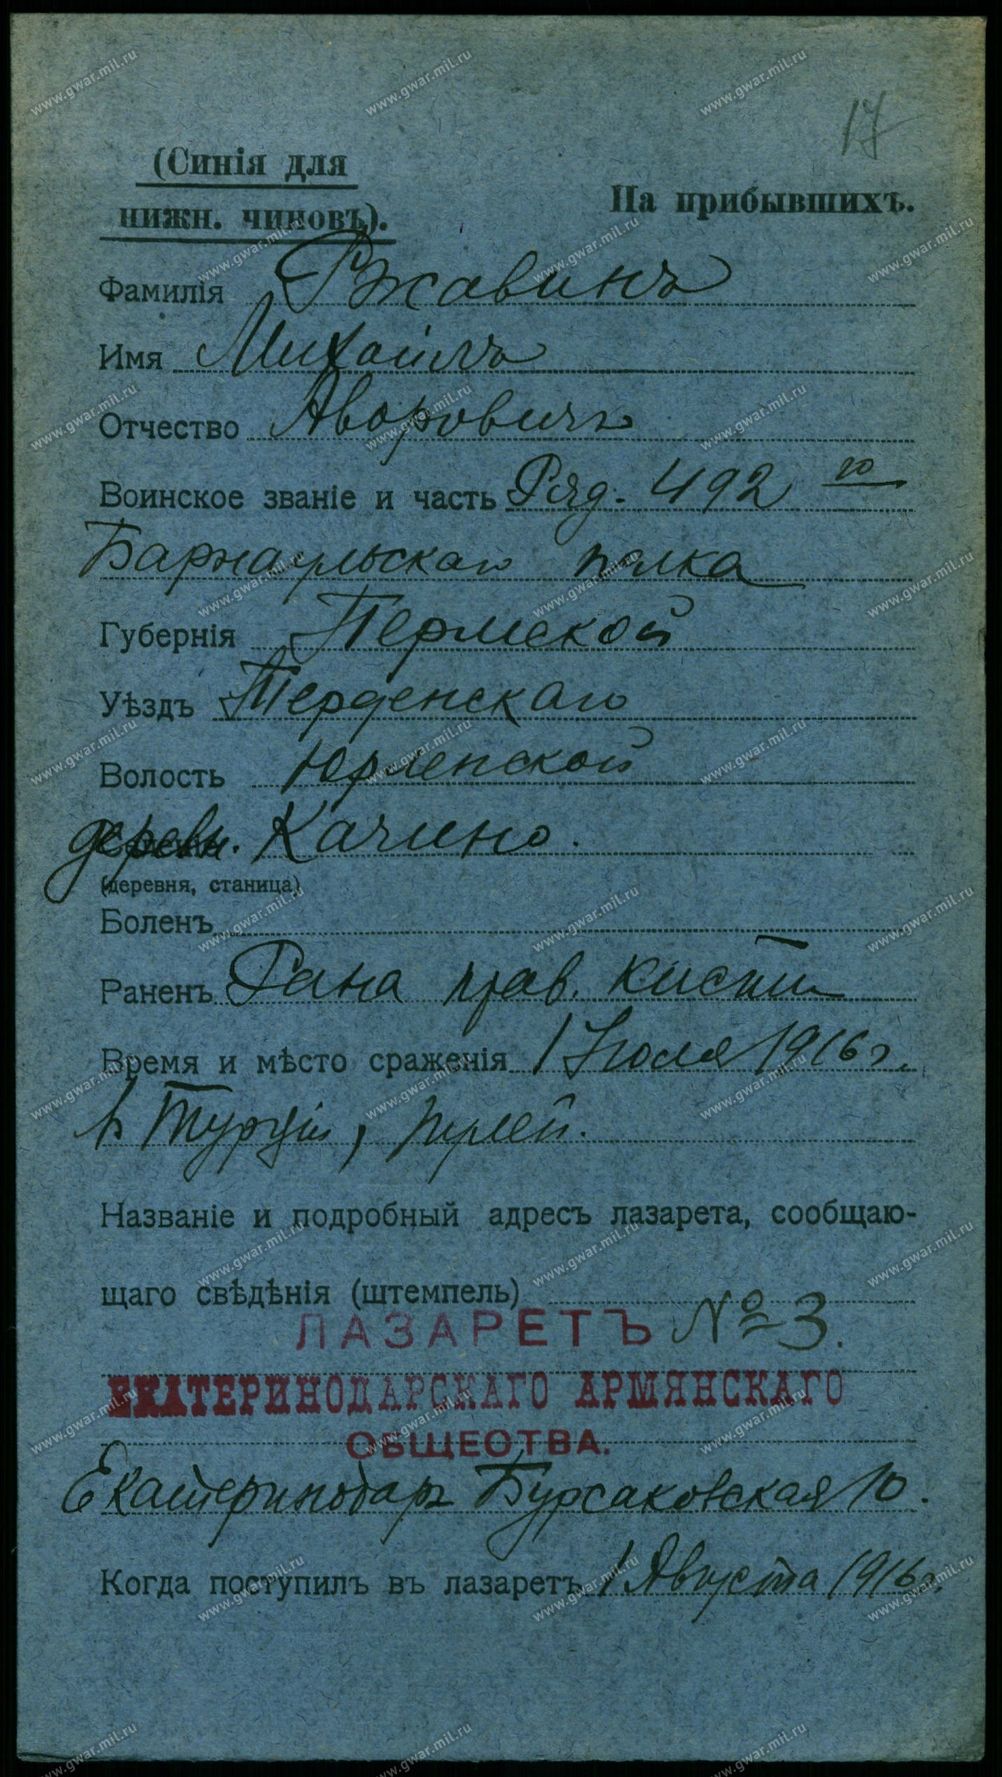 17
(Синія для
нижн. чиновъ).
На прибывшихъ.
Фамилія Ржавинъ
Имя Михаілъ
Отчество Аворовичъ
Воинское званіе и часть Ряд. 492 го
Барнаульскаго полка
Губернія Пермской
Уѣздъ Терденскаго
Волость Юрленской
деревн. Качино.
(деревня, станица)
Боленъ
Раненъ Рана прав. кисти
Время и мѣсто сраженія 1 Июля 1916 г.
в Турціи, пулей.
Названіе и подробный адресъ лазарета, сообщаю-
щаго свѣдѣнія (штемпель)
ЛАЗАРЕТЪ № 3.
ЕКАТЕРИНОДАРСКАГО АРМЯНСКАГО
ОБЩЕСТВА.
Екатеринодаръ Бурсаковская 10.
Когда поступилъ въ лазаретъ 1 Августа 1916 г.
www.gwar.mil.ru